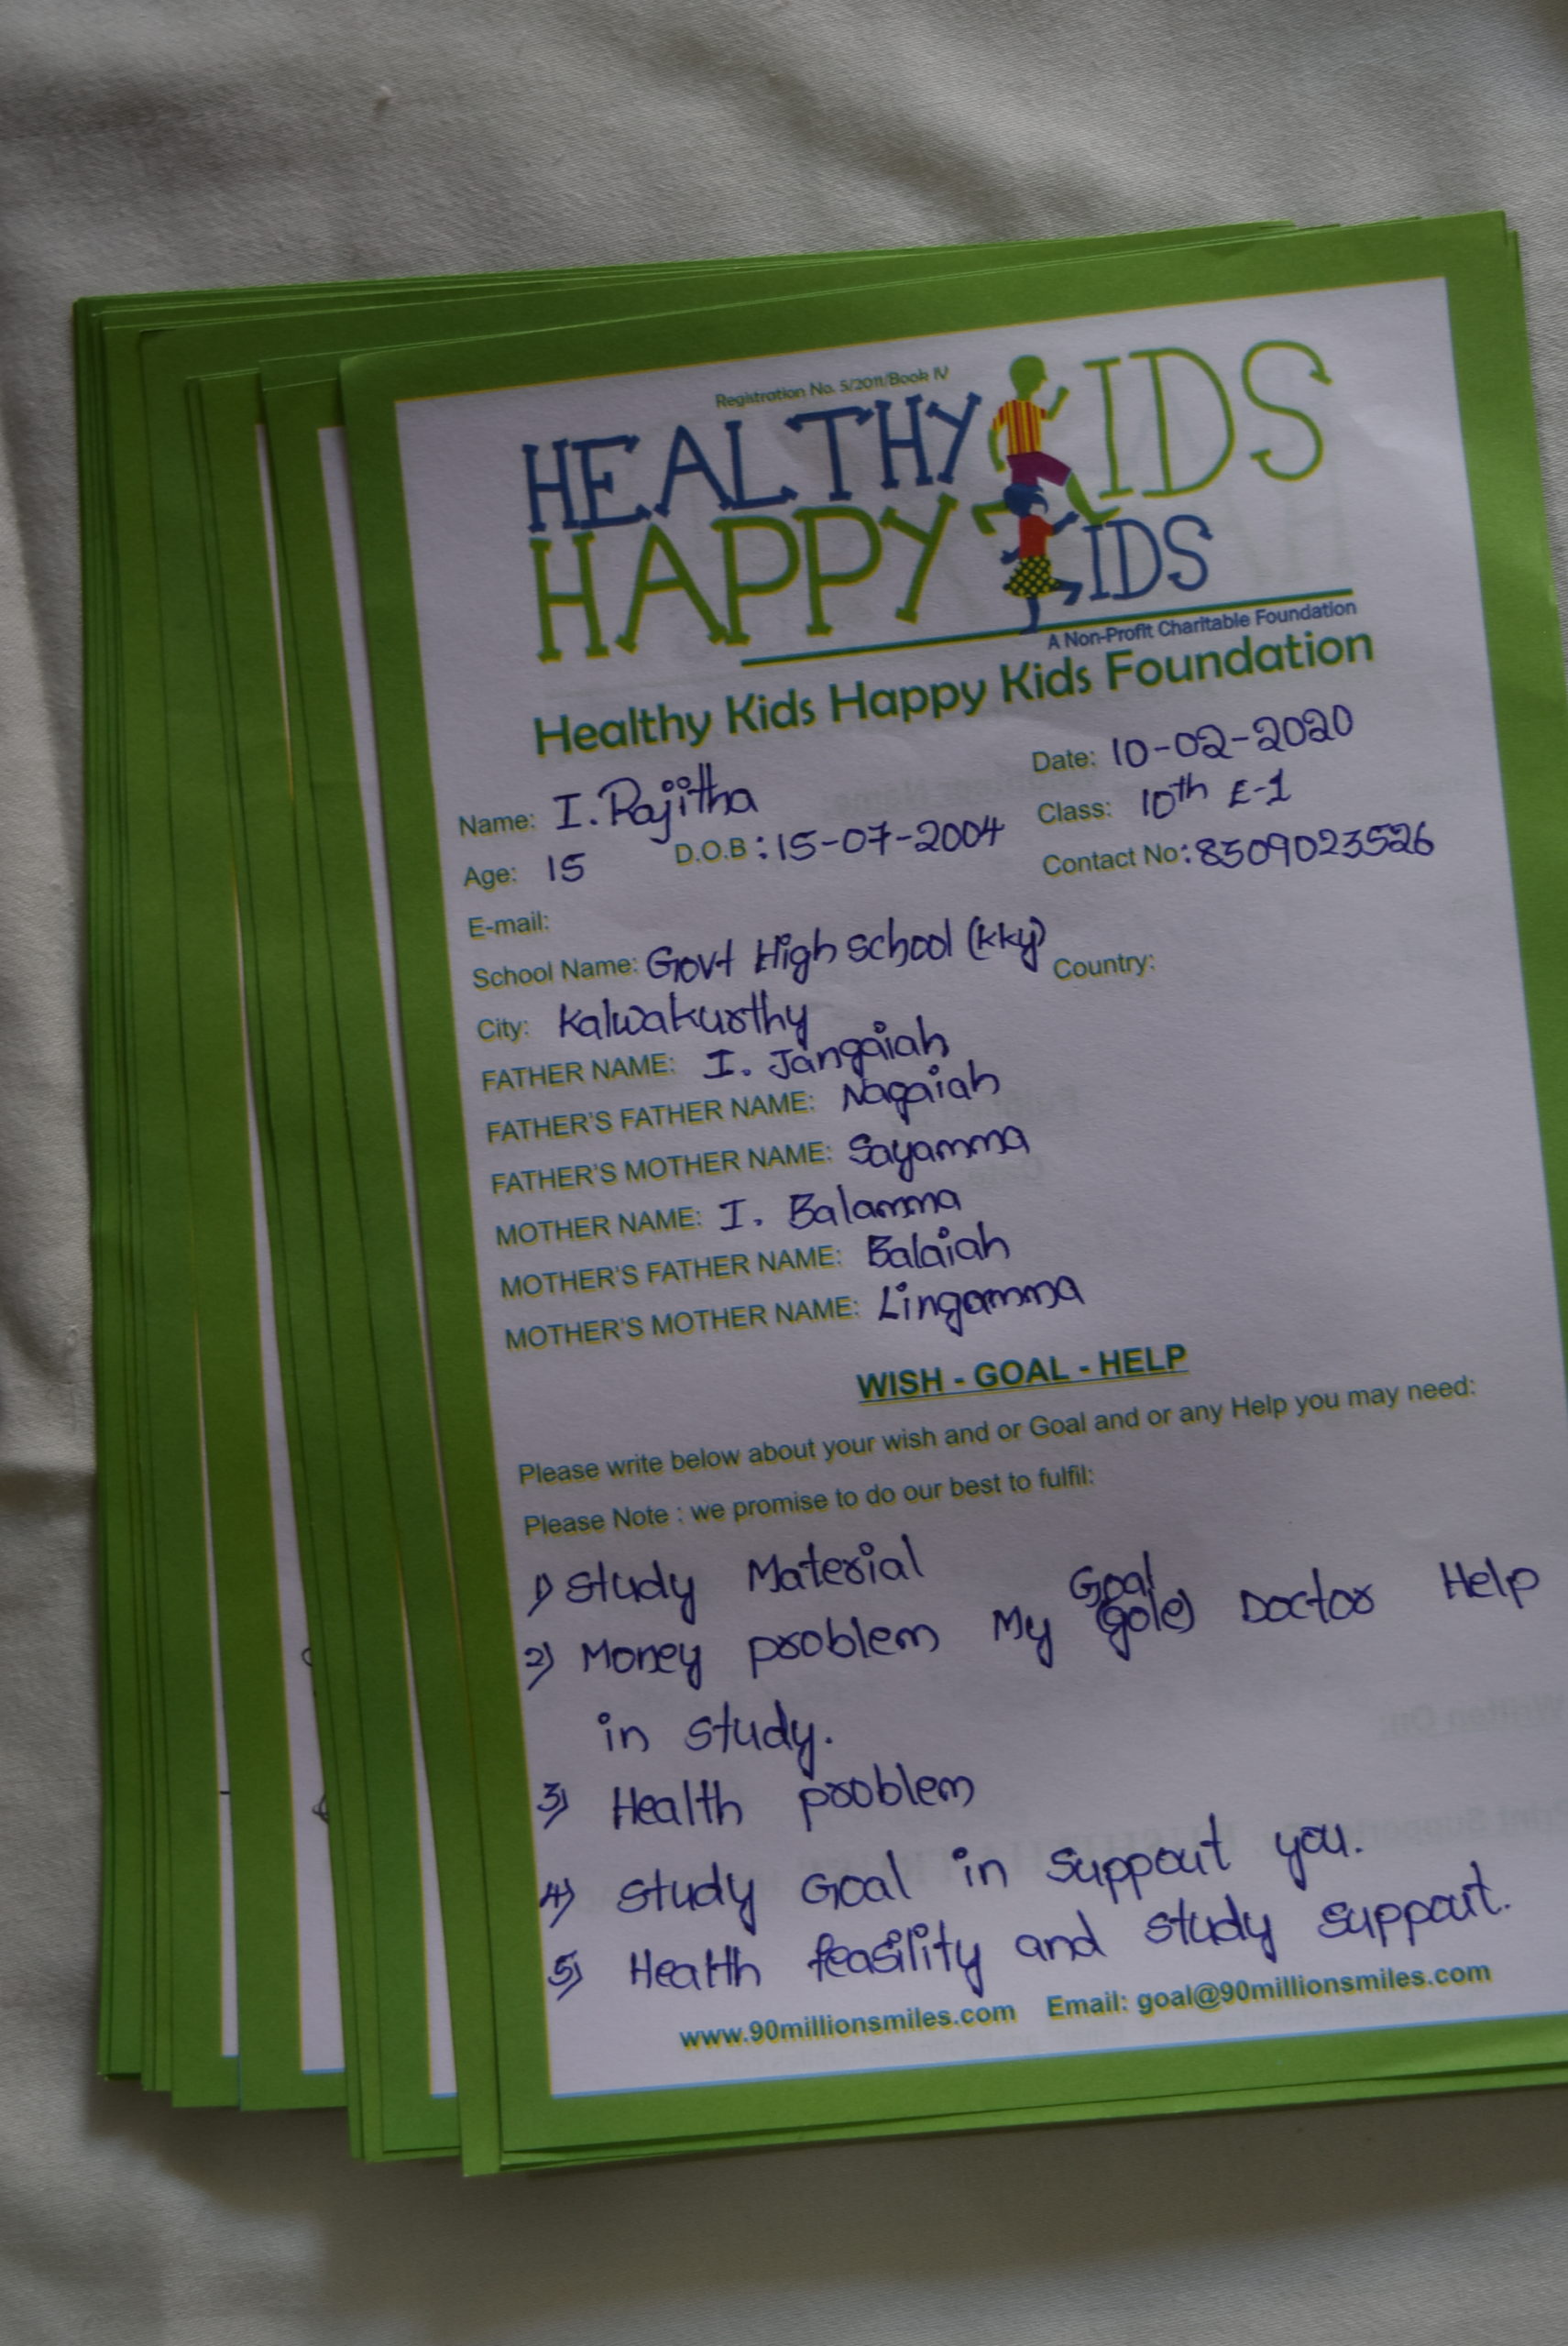 Registration No. 5/2011/Book IV
HEALTHY KIDS
HAPPY KIDS
A Non-Profit Charitable Foundation
Healthy Kids Happy Kids Foundation
Date: 10-02-2020
Name: I. Rajitha
Class: 10th E-1
Age: 15 D.O.B: 15-07-2004
Contact No: 8509023526
E-mail:
School Name: Govt High school (kky) Country:
City: Kalwakurthy
FATHER NAME: I. Jangaiah
FATHER'S FATHER NAME: Nagaiah
FATHER'S MOTHER NAME: Sayamma
MOTHER NAME: I. Balamma
MOTHER'S FATHER NAME: Balaiah
MOTHER'S MOTHER NAME: Lingamma
WISH - GOAL - HELP
Please write below about your wish and or Goal and or any Help you may need:
Please Note : we promise to do our best to fulfil:
1) Study Material
Goal
2) Money problem My (gole) Doctor Help
in study.
3) Health problem
4) Study Goal in support you.
5) Health feasility and study support.
www.90millionsmiles.com Email: goal@90millionsmiles.com